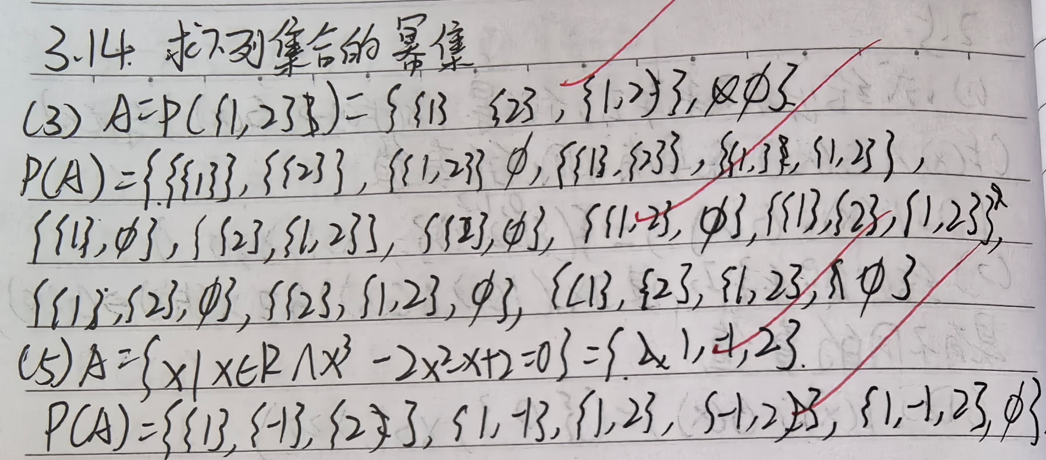 3.14. 求下列集合的幂集
(3) A=P({1,2})={{1} {2},{1,2}},∅}
P(A)={{{1}},{{2}},{{1,2}} ∅,{{1},{2}},{{1,}},{1,2}},
{{1},∅},{{2},{1,2}},{{2},∅},{{1,2},∅},{{1},{2},{1,2}},
{{1},{2},∅},{{2},{1,2},∅},{{1},{2},{1,2},∅}
(5) A={x|x∈R∧x³-2x²-x+2=0}={1,-1,2}.
P(A)={{1},{-1},{2}},{1,-1},{1,2},{-1,2}},{1,-1,2},∅}